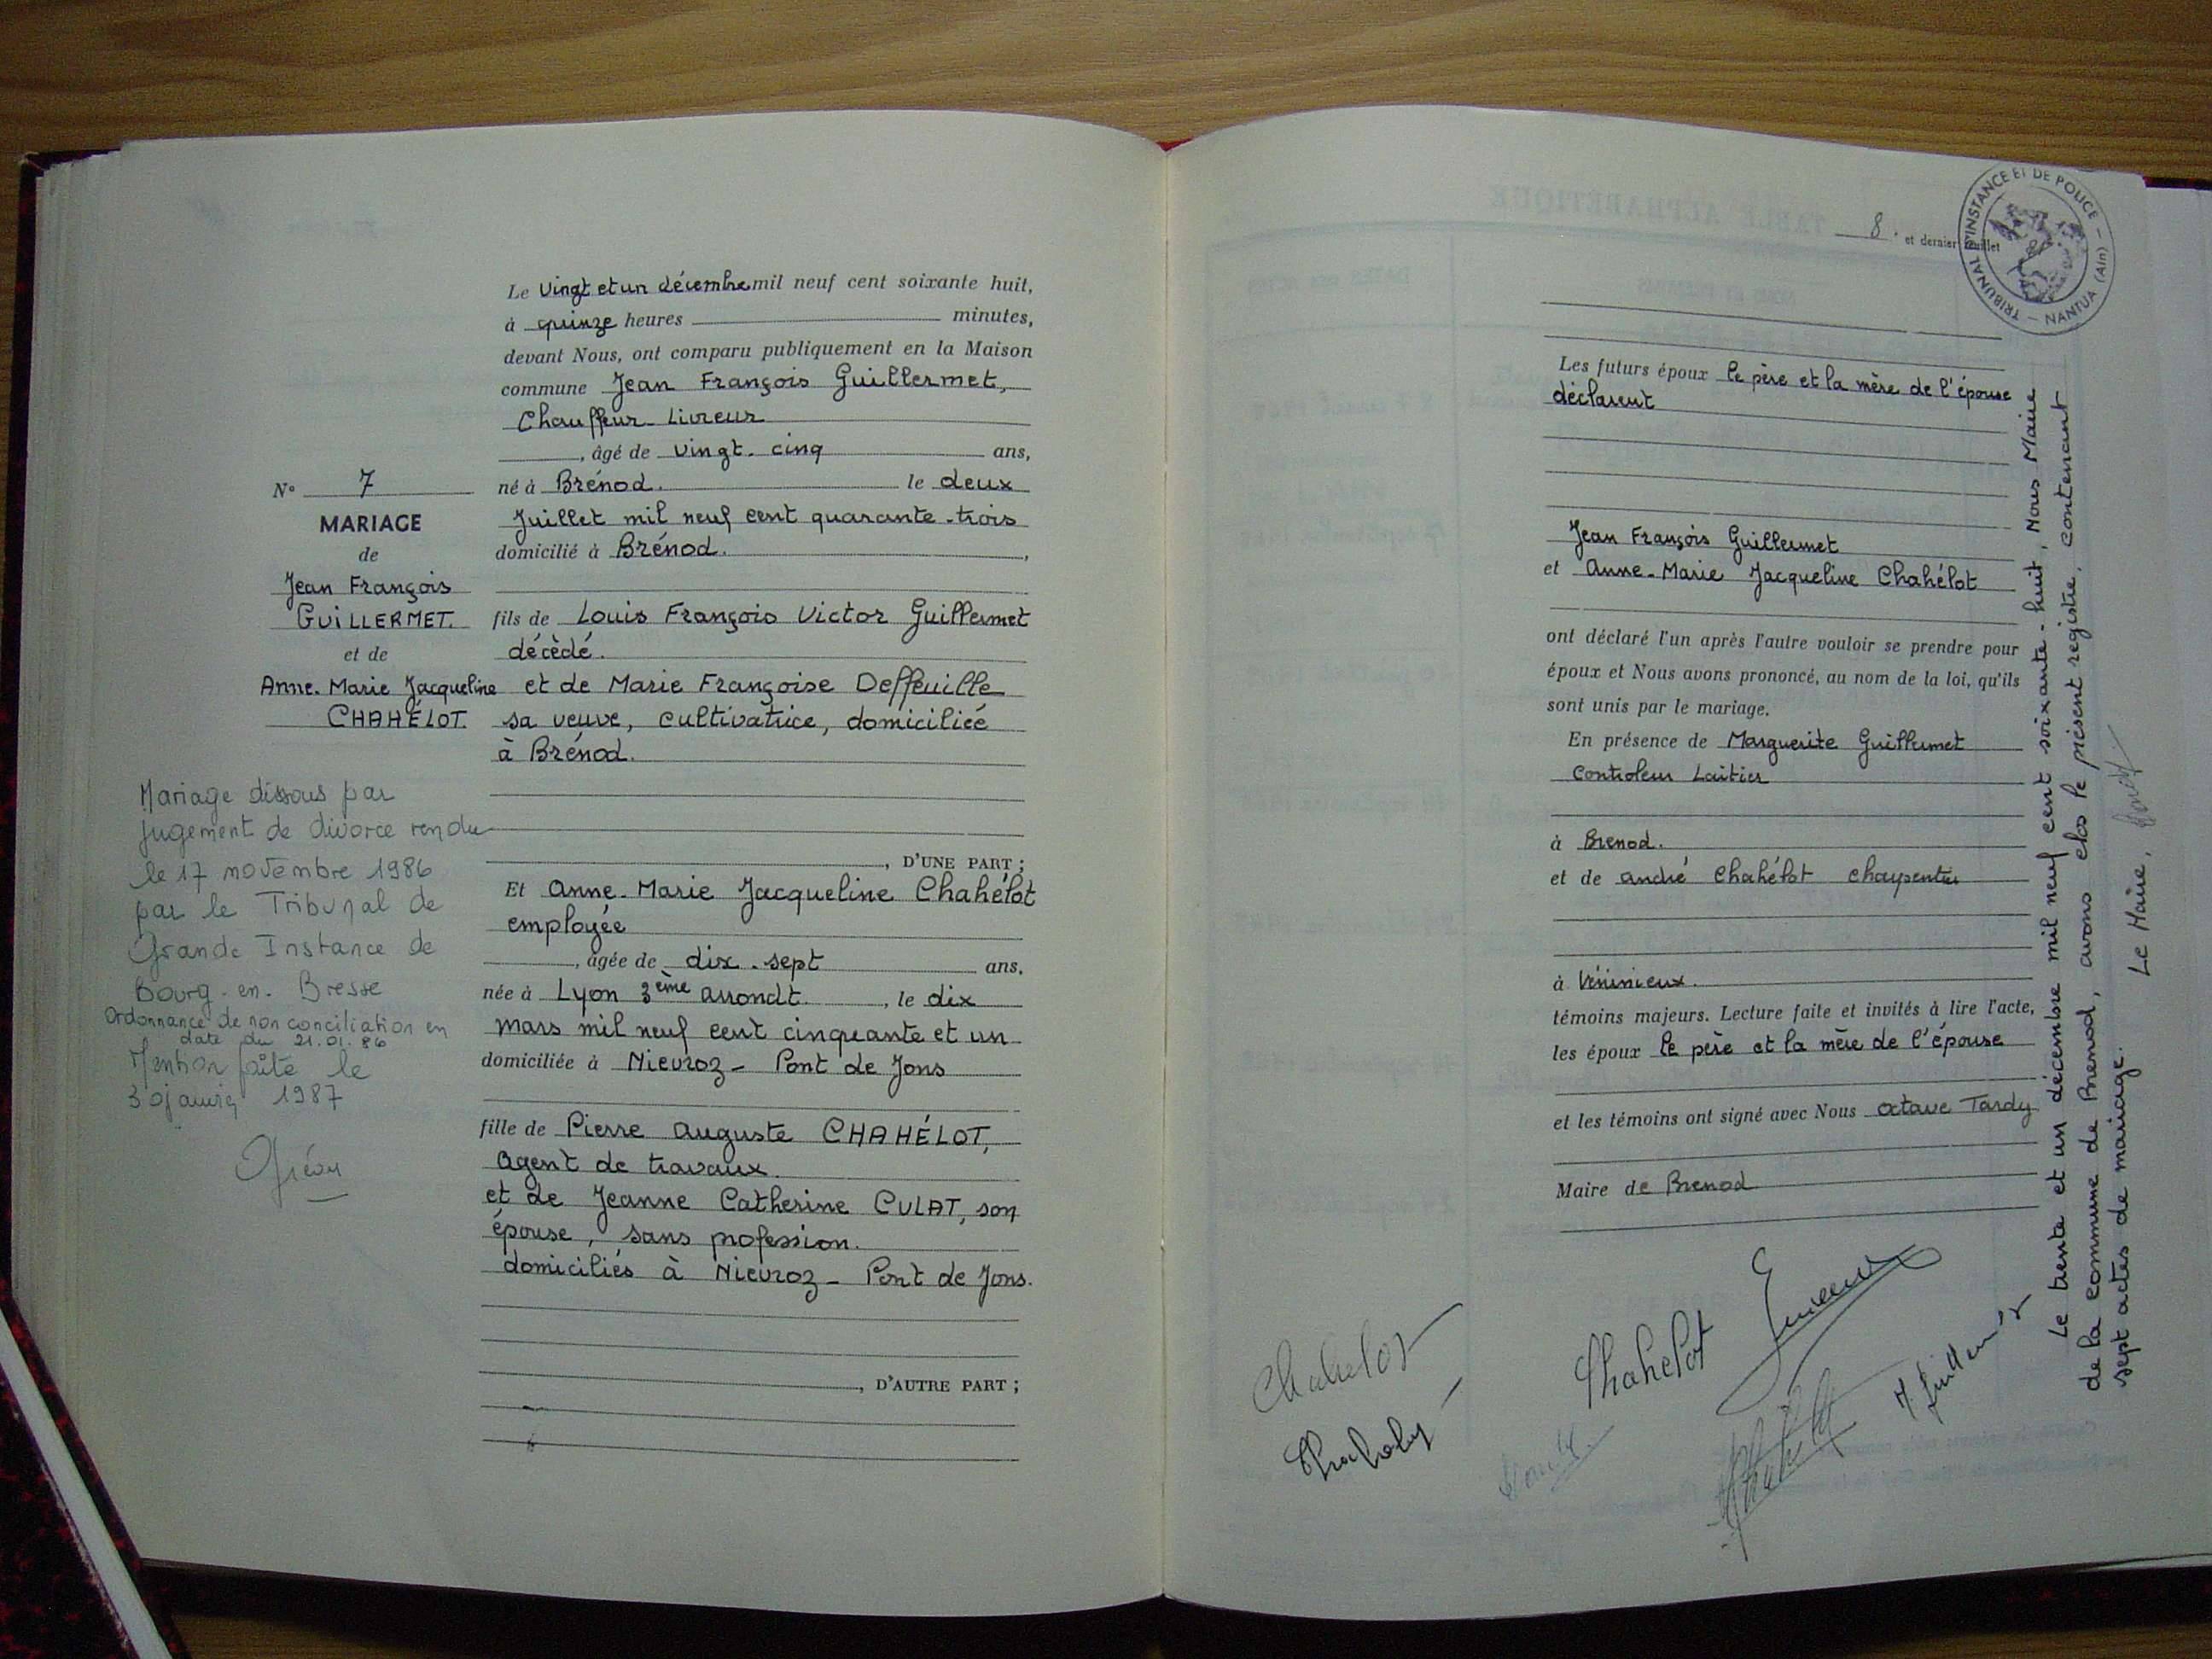 N° 7
MARIAGE
de
Jean François
GUILLERMET.
et de
Anne-Marie Jacqueline
CHAHÉLOT.
Mariage dissous par
jugement de divorce rendu
le 17 novembre 1986
par le Tribunal de
Grande Instance de
Bourg-en-Bresse
Ordonnance de non conciliation en
date du 21.01.86
Mention faite le
30 janvier 1987
Le vingt et un décembre mil neuf cent soixante huit,
à quinze heures minutes,
devant Nous, ont comparu publiquement en la Maison
commune Jean François Guillermet,
Chauffeur-Livreur
, âgé de vingt-cinq ans,
né à Brénod. le deux
Juillet mil neuf cent quarante-trois
domicilié à Brénod. ,
fils de Louis François Victor Guillermet
décèdé.
et de Marie Françoise Deffeuille
sa veuve, cultivatrice, domiciliée
à Brénod.
, D'UNE PART ;
Et Anne-Marie Jacqueline Chahélot
employée
, âgée de dix-sept ans,
née à Lyon 3ème arrondt. , le dix
mars mil neuf cent cinquante et un
domiciliée à Nievroz- Pont de Jons
fille de Pierre Auguste CHAHÉLOT,
Agent de travaux.
et de Jeanne Catherine CULAT, son
épouse, sans profession.
domiciliés à Nievroz- Pont de Jons.
, D'AUTRE PART ;
8. et dernier feuillet
TRIBUNAL D'INSTANCE ET DE POLICE - NANTUA (Ain) -
Les futurs époux le père et la mère de l'épouse
déclarent
Jean François Guillermet
et Anne-Marie Jacqueline Chahélot
ont déclaré l'un après l'autre vouloir se prendre pour
époux et Nous avons prononcé, au nom de la loi, qu'ils
sont unis par le mariage.
En présence de Marguerite Guillermet
Controleur Laitier
à Brenod.
et de André Chahélot charpentier
à Véninieux.
témoins majeurs. Lecture faite et invités à lire l'acte,
les époux le père et la mère de l'épouse
et les témoins ont signé avec Nous Octave Tardy
Maire de Brenod
Chahelot
Chahelot
Le trente et un décembre mil neuf cent soixante-huit, Nous Maire
de la commune de Brenod, avons clos le présent registre, contenant
sept actes de mariage. Le Maire,